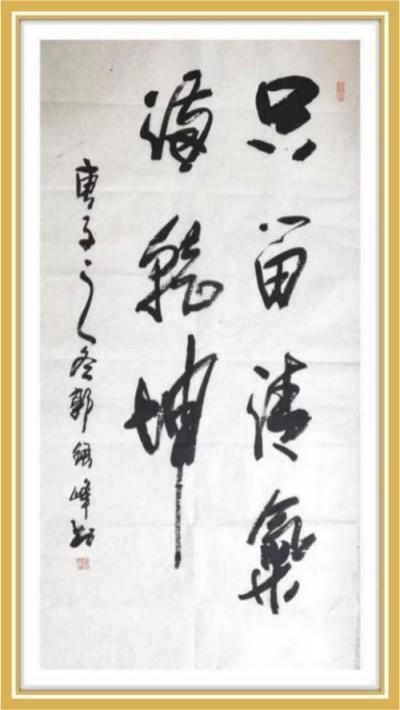 只留清氣
满乾坤
庚子之冬郭
峰